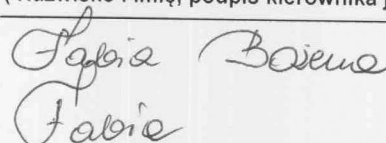 ( Nazwisko i imię, podpis kierownika j
Fabia Bożena
Fabia